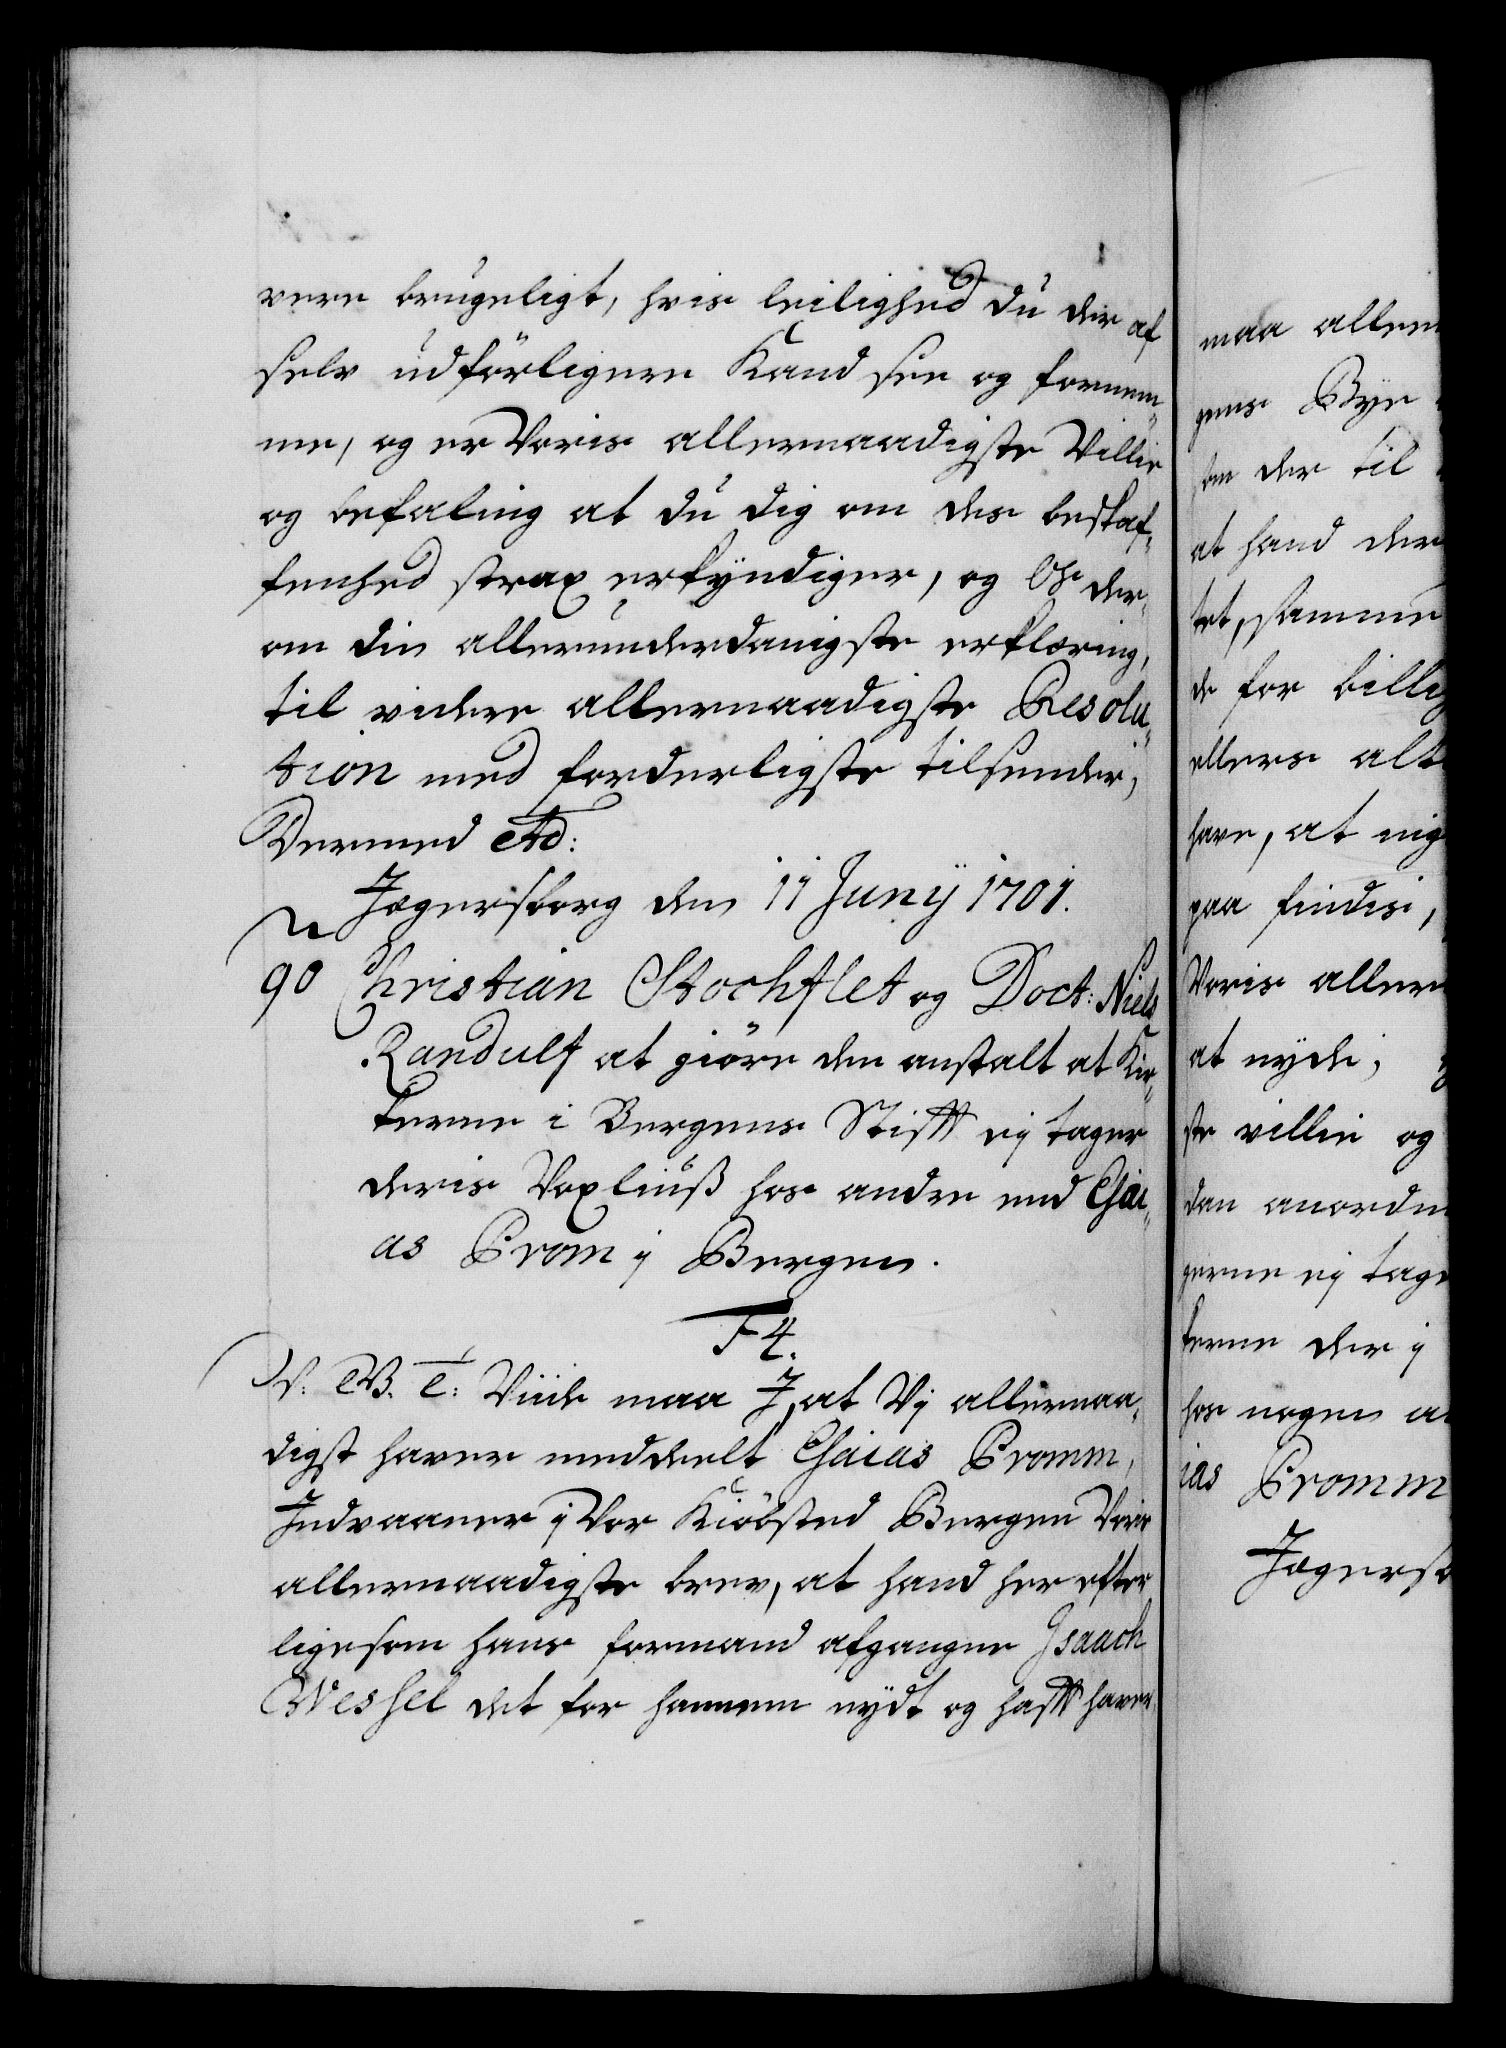 vere brugeligt, hvis leilighed du der af
selv udförligere Kand see og fornem¬
me, og er Voris allernaadigste Villie
og befaling at du dig om des beskaf¬
fenhed strax erkyndiger, og Os der¬
om din allerunderdanigste erklæring,
til videre allernaadigste Resolu¬
tion med forderligste tilsender,
Dermed etc:
Jegersborg den 11 Junÿ 1701.
90 Christian Stochflet og Doct: Niels
Randulf at giöre den anstalt at Kir¬
kerne i Bergens Stifft ej tager
deris Voxliuß hos andre end Esai¬
as Prom i Bergen.
F4.
V. G. T: Viide maa I, at Vj allernaa¬
digst haver meddeelt Esaias Promm,
Indvaaner i Vor Kiöbsted Bergen Voris
allernaadigste brev, at hand her efter
ligesom hans formand afgangne Isaach
Wessel det for hannem nydt og hafft haver,
maa allern
gens Bye
som der til
at hand der
tet, samme
de for billig
ellers alt
have, at nig
paa findis,
Voris aller
at nyde;
ste villie og
dan anordn
gerne ej tage
kerne der i
hos nogen an
ias Promm
Jegersb